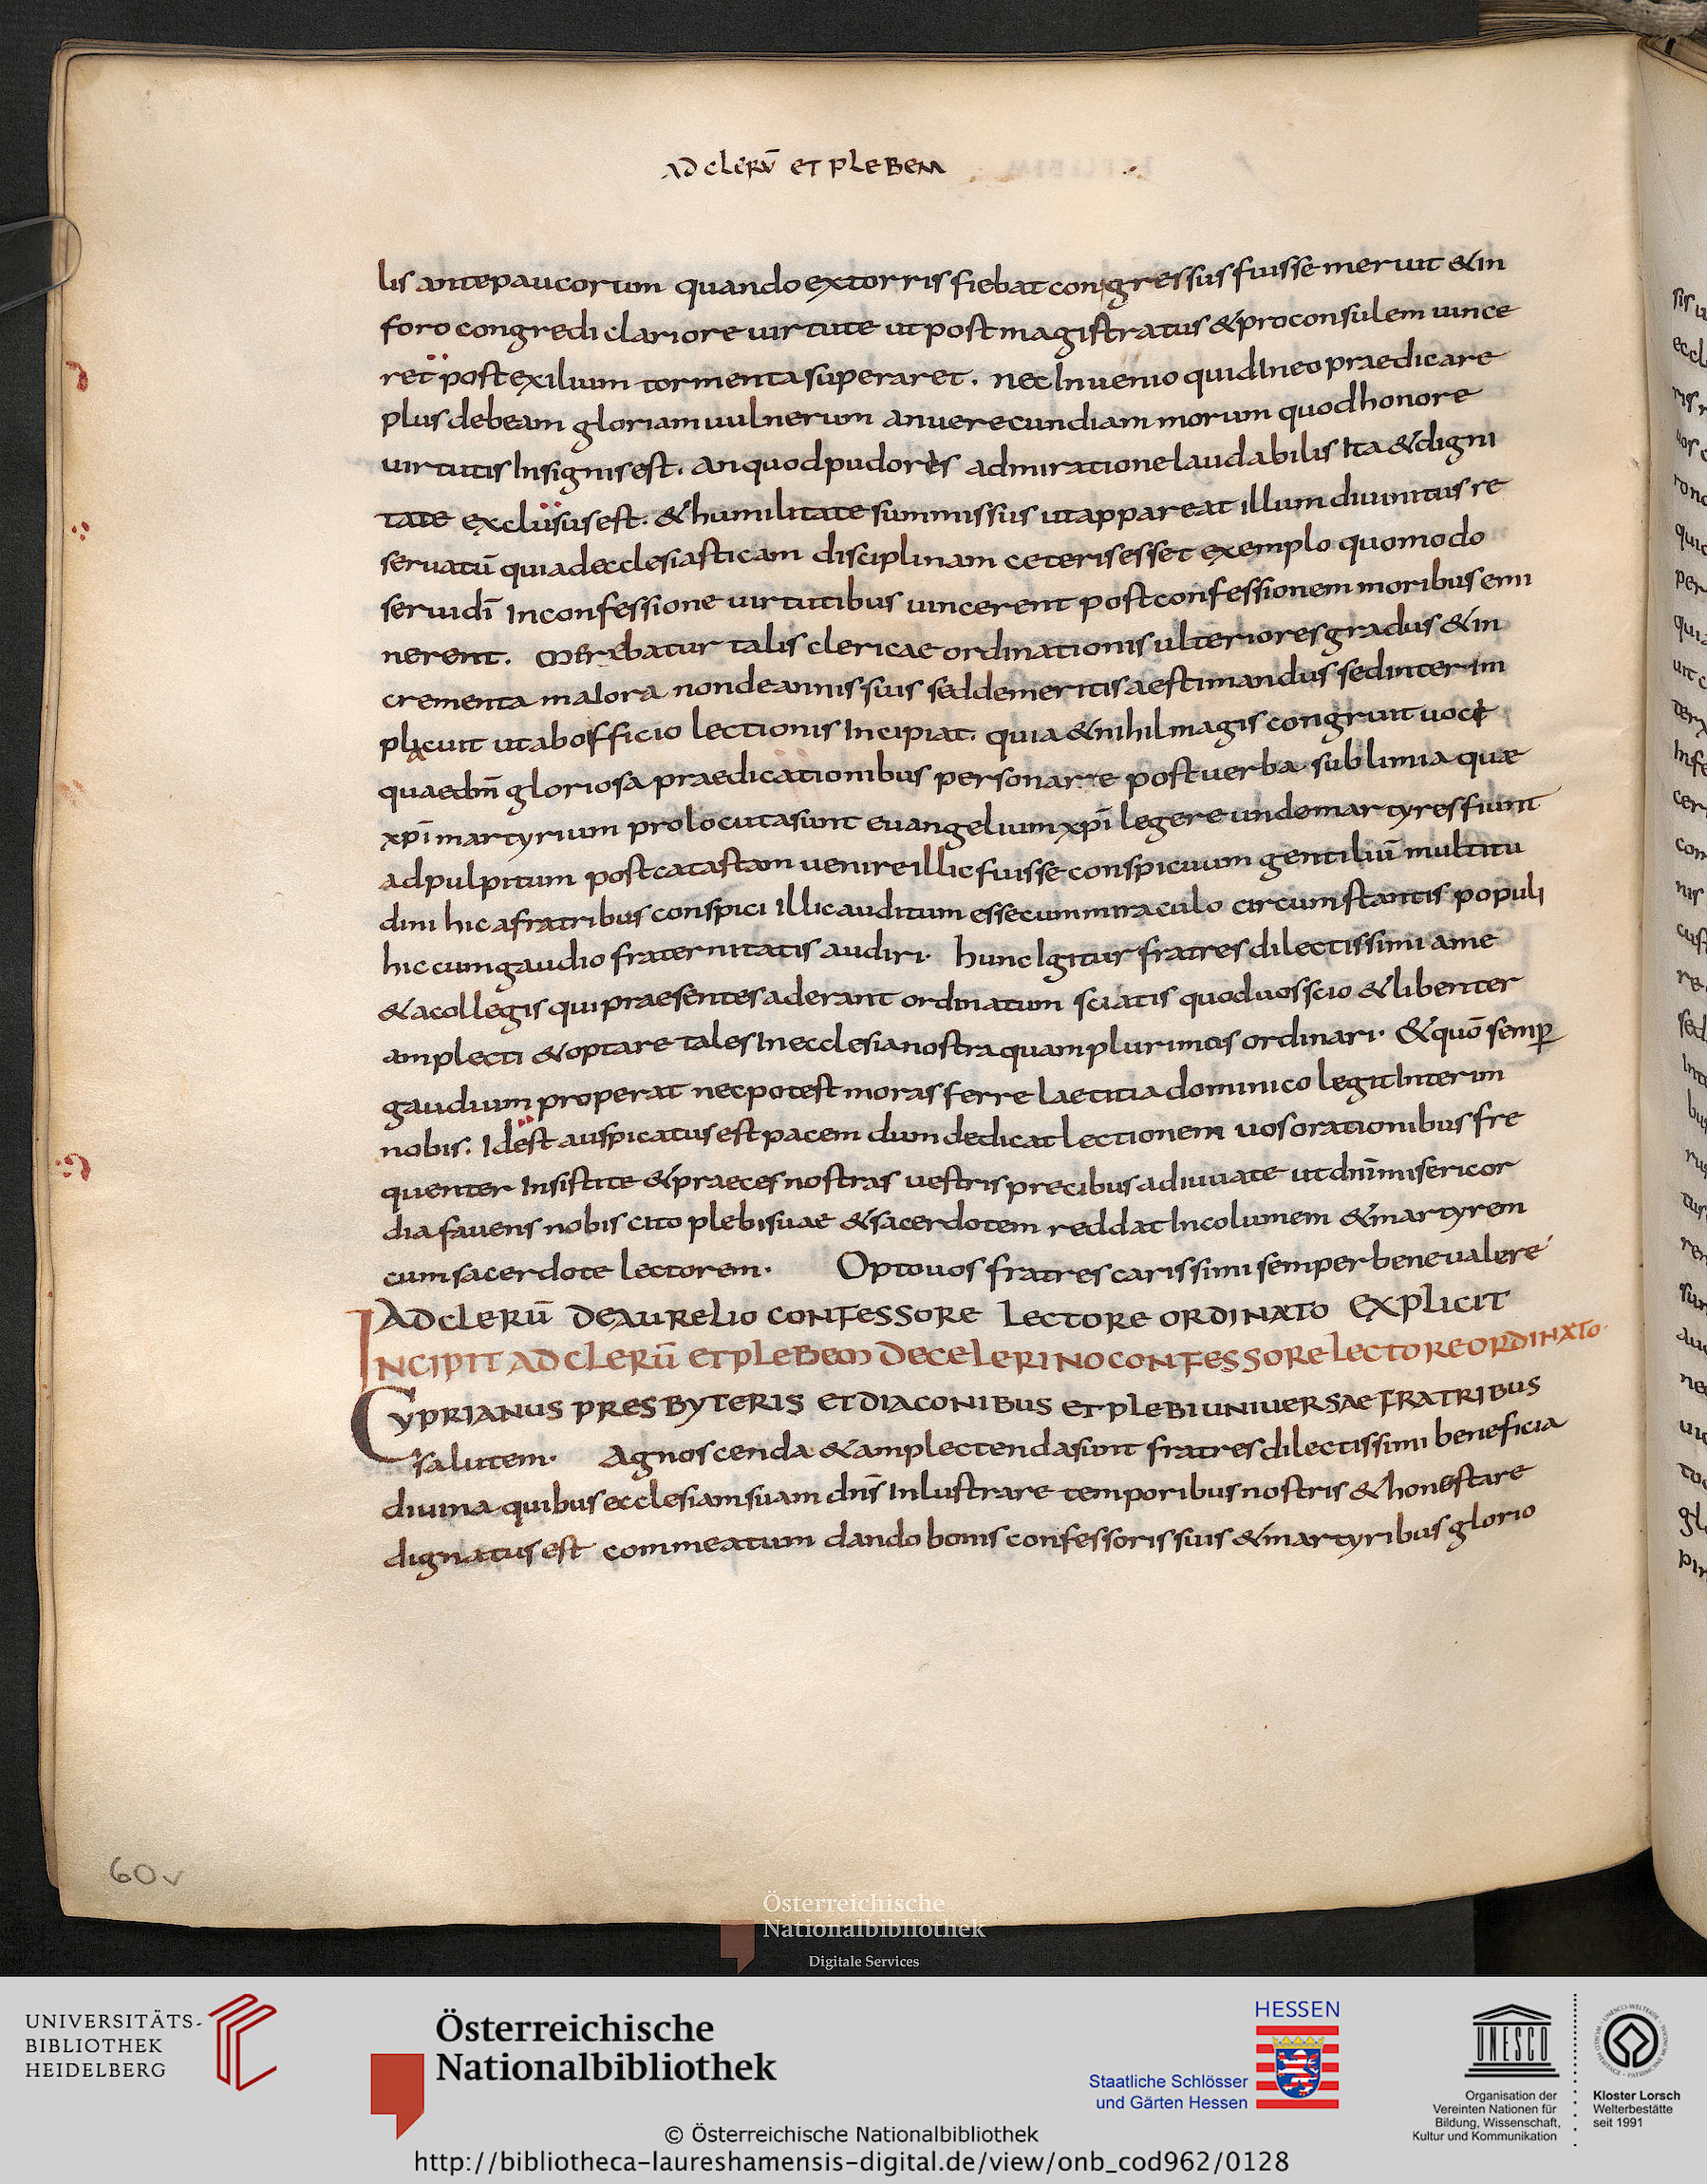 AD CLERŪ ET PLEBEM
lis ante paucorum quando extorris fiebat congressus fuisse meruit & in
foro congredi clariore uirtute ut post magistratus & proconsulem uince
ret post exilium tormenta superaret. nec Inuenio quid In eo praedicare
plus debeam gloriam uulnerum an uerecundiam morum quod honore
uirtutis Insignis est. an quod pudores admiratione laudabilis Ita & digni
tate exclusus est. & humilitate summissus ut appareat illum diuinitus re
seruatū qui ad ecclesiasticam disciplinam ceteris esset exemplo quomodo
serui dī In confessione uirtutibus uincerent post confessionem moribus emi
nerent. Merebatur talis clericae ordinationis ulteriores gradus & in
crementa maiora non de annis suis sed de meritis aestimandus sed interim
placuit ut ab officio lectionis Incipiat. quia & nihil magis congruit uoci
quae dnī gloriosa praedicationibus personare post uerba sublimia quae
xpī martyrium prolocuta sunt euangelium xpī legere unde martyres fiunt
ad pulpitum post catastam uenire illic fuisse conspicuum gentiliū multitu
dini hic a fratribus conspici illic auditum esse cum miraculo circumstantis populi
hic cum gaudio fraternitatis audiri. hunc Igitur fratres dilectissimi a me
& a collegis qui praesentes aderant ordinatum sciatis quod uos scio & libenter
amplecti & optare tales In ecclesia nostra quam plurimos ordinari. & quō semp
gaudium properat nec potest moras ferre laetitia dominico legit Interim
nobis. Id est auspicatus est pacem dum dedicat lectionem uos orationibus fre
quenter Insistite & praeces nostras uestris precibus adiuuate ut dnī misericor
dia fauens nobis cito plebi suae & sacerdotem reddat Incolumem & martyrem
cum sacerdote lectorem. Opto uos fratres carissimi semper bene ualere
AD CLERŪ DE AURELIO CONFESSORE LECTORE ORDINATO EXPLICIT
INCIPIT AD CLERŪ ET PLEBEM DE CELERINO CONFESSORE LECTORE ORDINATO.
CYPRIANUS PRESBYTERIS ET DIACONIBUS ET PLEBI UNIUERSAE FRATRIBUS
salutem. Agnoscenda & amplectenda sunt fratres dilectissimi beneficia
diuina quibus ecclesiam suam dnś Inlustrare temporibus nostris & honestare
dignatus est commeatum dando bonis confessoris suis & martyribus glorio
60v
Österreichische
Nationalbibliothek
Digitale Services
UNIVERSITÄTS-
BIBLIOTHEK
HEIDELBERG
Österreichische
Nationalbibliothek
HESSEN
Staatliche Schlösser
und Gärten Hessen
UNESCO
Organisation der
Vereinten Nationen für
Bildung, Wissenschaft,
Kultur und Kommunikation
Kloster Lorsch
Welterbestätte
seit 1991
© Österreichische Nationalbibliothek
http://bibliotheca-laureshamensis-digital.de/view/onb_cod962/0128